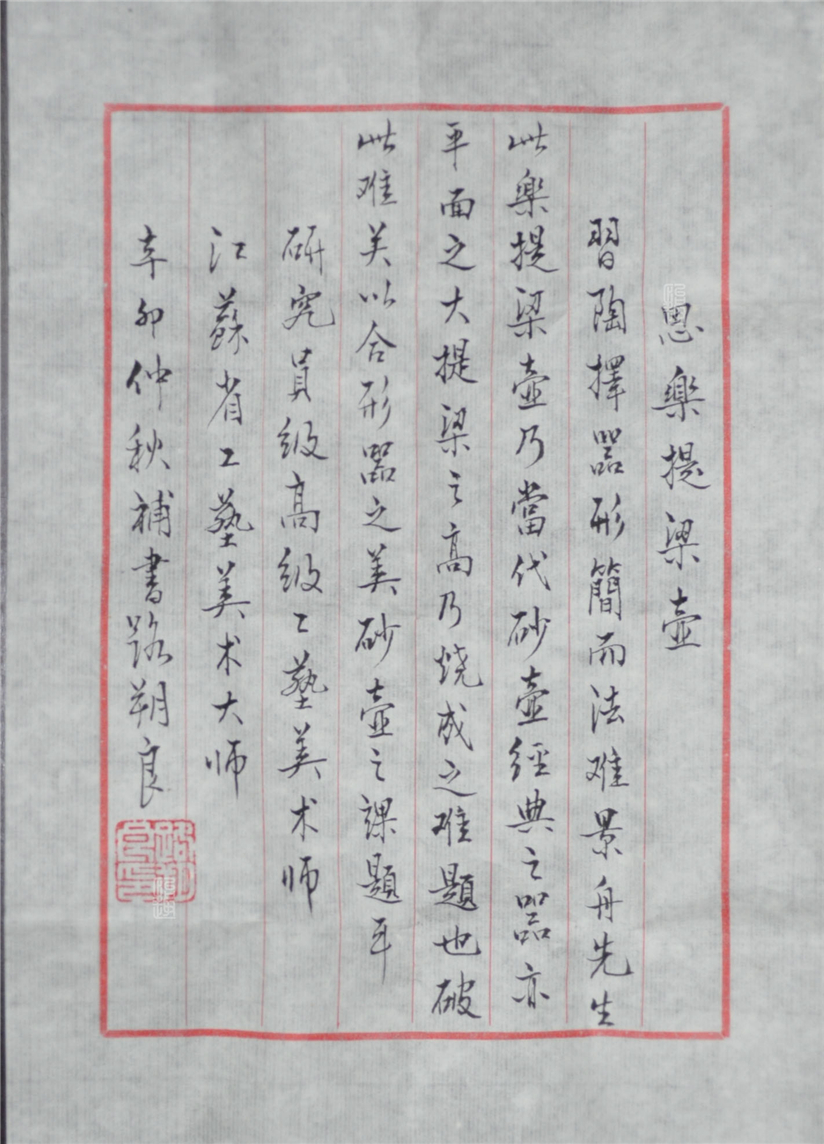 思樂提梁壺
習陶擇器形簡而法难景舟先生
此樂提梁壺乃當代砂壺經典之器亦
平面之大提梁之高乃烧成之难題也破
此难关以合形器之美砂壺之課題耳
研究員级高级工藝美术师
江蘇省工藝美术大师
辛卯仲秋補書路朔良